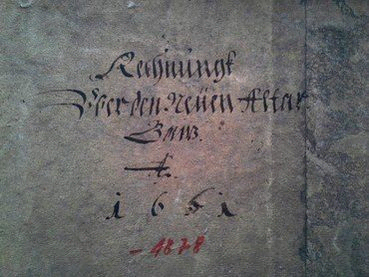 Rechnungk
Vber den Neüen Altar
Baw.
A.
1651
- 4878